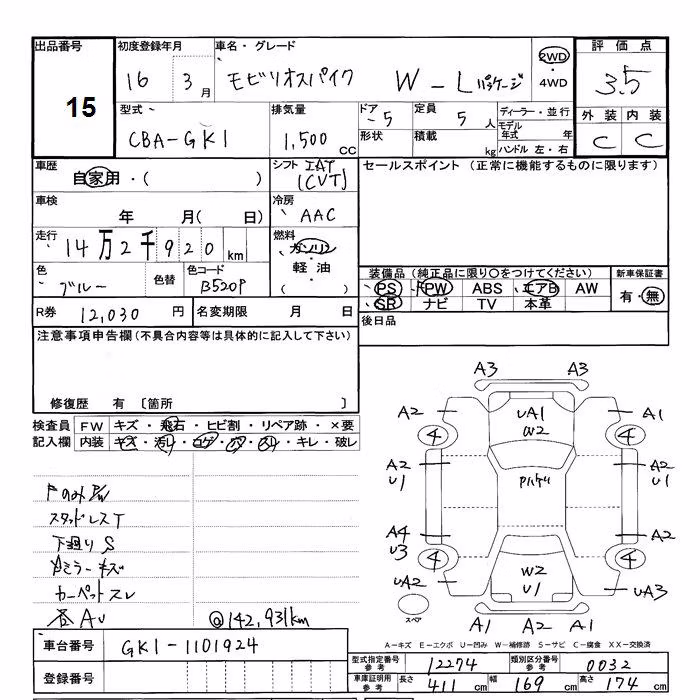 出品番号
15
初度登録年月
16 3月
車名・グレード
モビリオスパイク W-Lパッケージ
2WD
・4WD
評価点
3.5
型式
CBA-GK1
排気量
1,500 cc
ドア 5
形状
定員 5人
積載 kg
ディーラー・並行
モデル年式 年
ハンドル 左・右
外装 内装
C C
車歴
自家用・( )
シフト IAT
(CVT)
セールスポイント (正常に機能するものに限ります)
車検
年 月( 日)
冷房
AAC
走行
14万2千920km
燃料
ガソリン
・軽油
( )
色
ブルー
色替
色コード
B520P
装備品 (純正品に限り○をつけてください)
PS PW ABS エアB AW
SR ナビ TV 本革
新車保証書
有・無
R券 12,030円
名変期限 月 日
後日品
注意事項申告欄(不具合内容等は具体的に記入して下さい)
修復歴 有 [箇所 ]
検査員記入欄
FW キズ・飛石・ヒビ割・リペア跡・×要
内装 キズ・汚れ・コゲ・穴・スレ・キレ・破レ
スタッドレスT
下廻りS
ミラーキズ
カーペットスレ
各AU
@142,931km
A3 A3
A2 UA1 A1
W2
4 4
A2 A2
U1 U1
A4 A2
U3
4 4
UA2 W2 UA3
U1
スペア
A1 A2 A1
A-キズ E-エクボ U-凹み W-補修跡 S-サビ C-腐食 XX-交換済
車台番号 GK1-1101924
登録番号
型式指定番号参考 12274
類別区分番号参考 0032
車庫証明用参考 長さ 411cm 幅 169cm 高さ 174cm